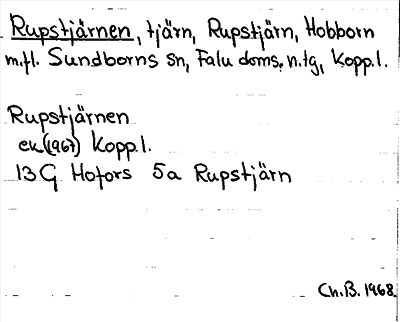 Rupstjärnen, tjärn, Rupstjärn, Hobborn
m.fl. Sundborns sn, Falu doms. n. tg, Kopp. l.
Rupstjärnen
ek(1967) Kopp. l.
13 G Hofors 5a Rupstjärn
Ch. B. 1968.